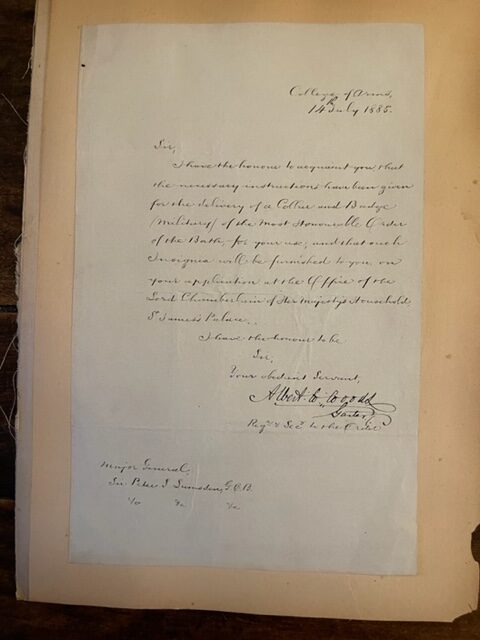 College of Arms,
14th July 1885.
Sir,
I have the honour to acquaint you, that
the necessary instructions have been given
for the delivery of a Collar and Badge
(Military) of the Most Honourable Order
of the Bath, for your use, and that such
Insignia will be furnished to you, on
your application at the Office of the
Lord Chamberlain of Her Majesty's Household
St James's Palace.
I have the honour to be
Sir,
Your obedient Servant,
Albert W. Woods
Garter
Regr & Sec. to the Order
Major General,
Sir Peter S Lumsden, G.C.B.